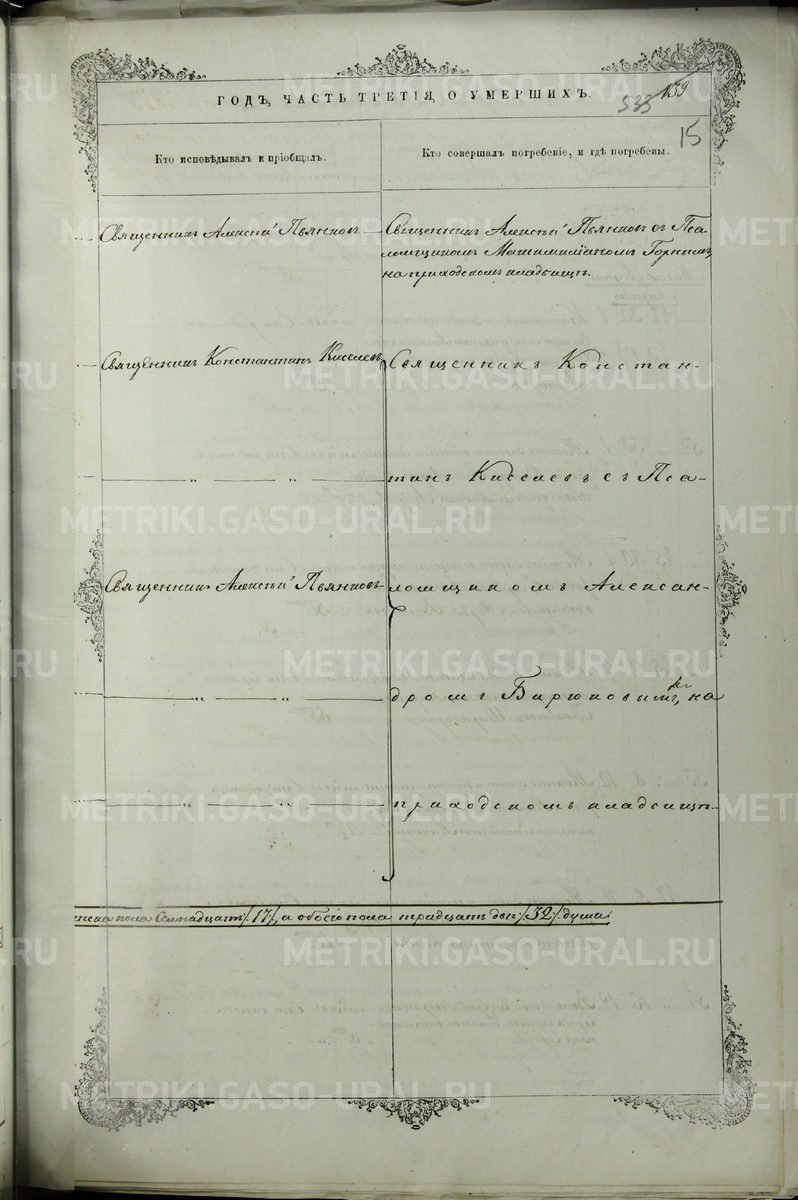 ГОДЪ, ЧАСТЬ ТРЕТІЯ, О УМЕРШИХЪ.
533 159
15
Кто исповѣдывалъ и пріобщалъ.
Кто совершалъ погребеніе, и гдѣ погребены.
Священникъ Алексѣй Пьянковъ
Священникъ Алексѣй Пьянковъ съ Пса
ломщикомъ Максимиліаномъ Горнымъ,
на приходскомъ кладбищѣ.
Священникъ Константинъ Киселевъ
Священникъ Констан-
" "
тинъ Киселевъ съ Пса-
Священникъ Алексѣй Пьянковъ
ломщикомъ Алексан-
" "
дромъ Бирюковымъ, на
" "
приходскомъ кладбищѣ.
пола Семнадцать /17/, а обоего пола тридцать двѣ /32/ души
METRIKI.GASO-URAL.RU